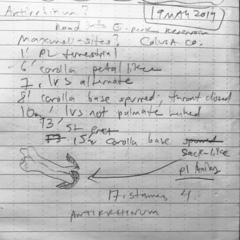 Antirrhinum?
19 MAY 2019
Road
Maxwell-Sites, Colusa Co.
1' Pl terrestrial
6' corolla petal like
7, lvs alternate
8' corolla base spurred; throat closed
10 lvs not palmate lobed
13' st erect
15 corolla base spurred
sack-like
pl
17, stamen 4
Antirrhinum